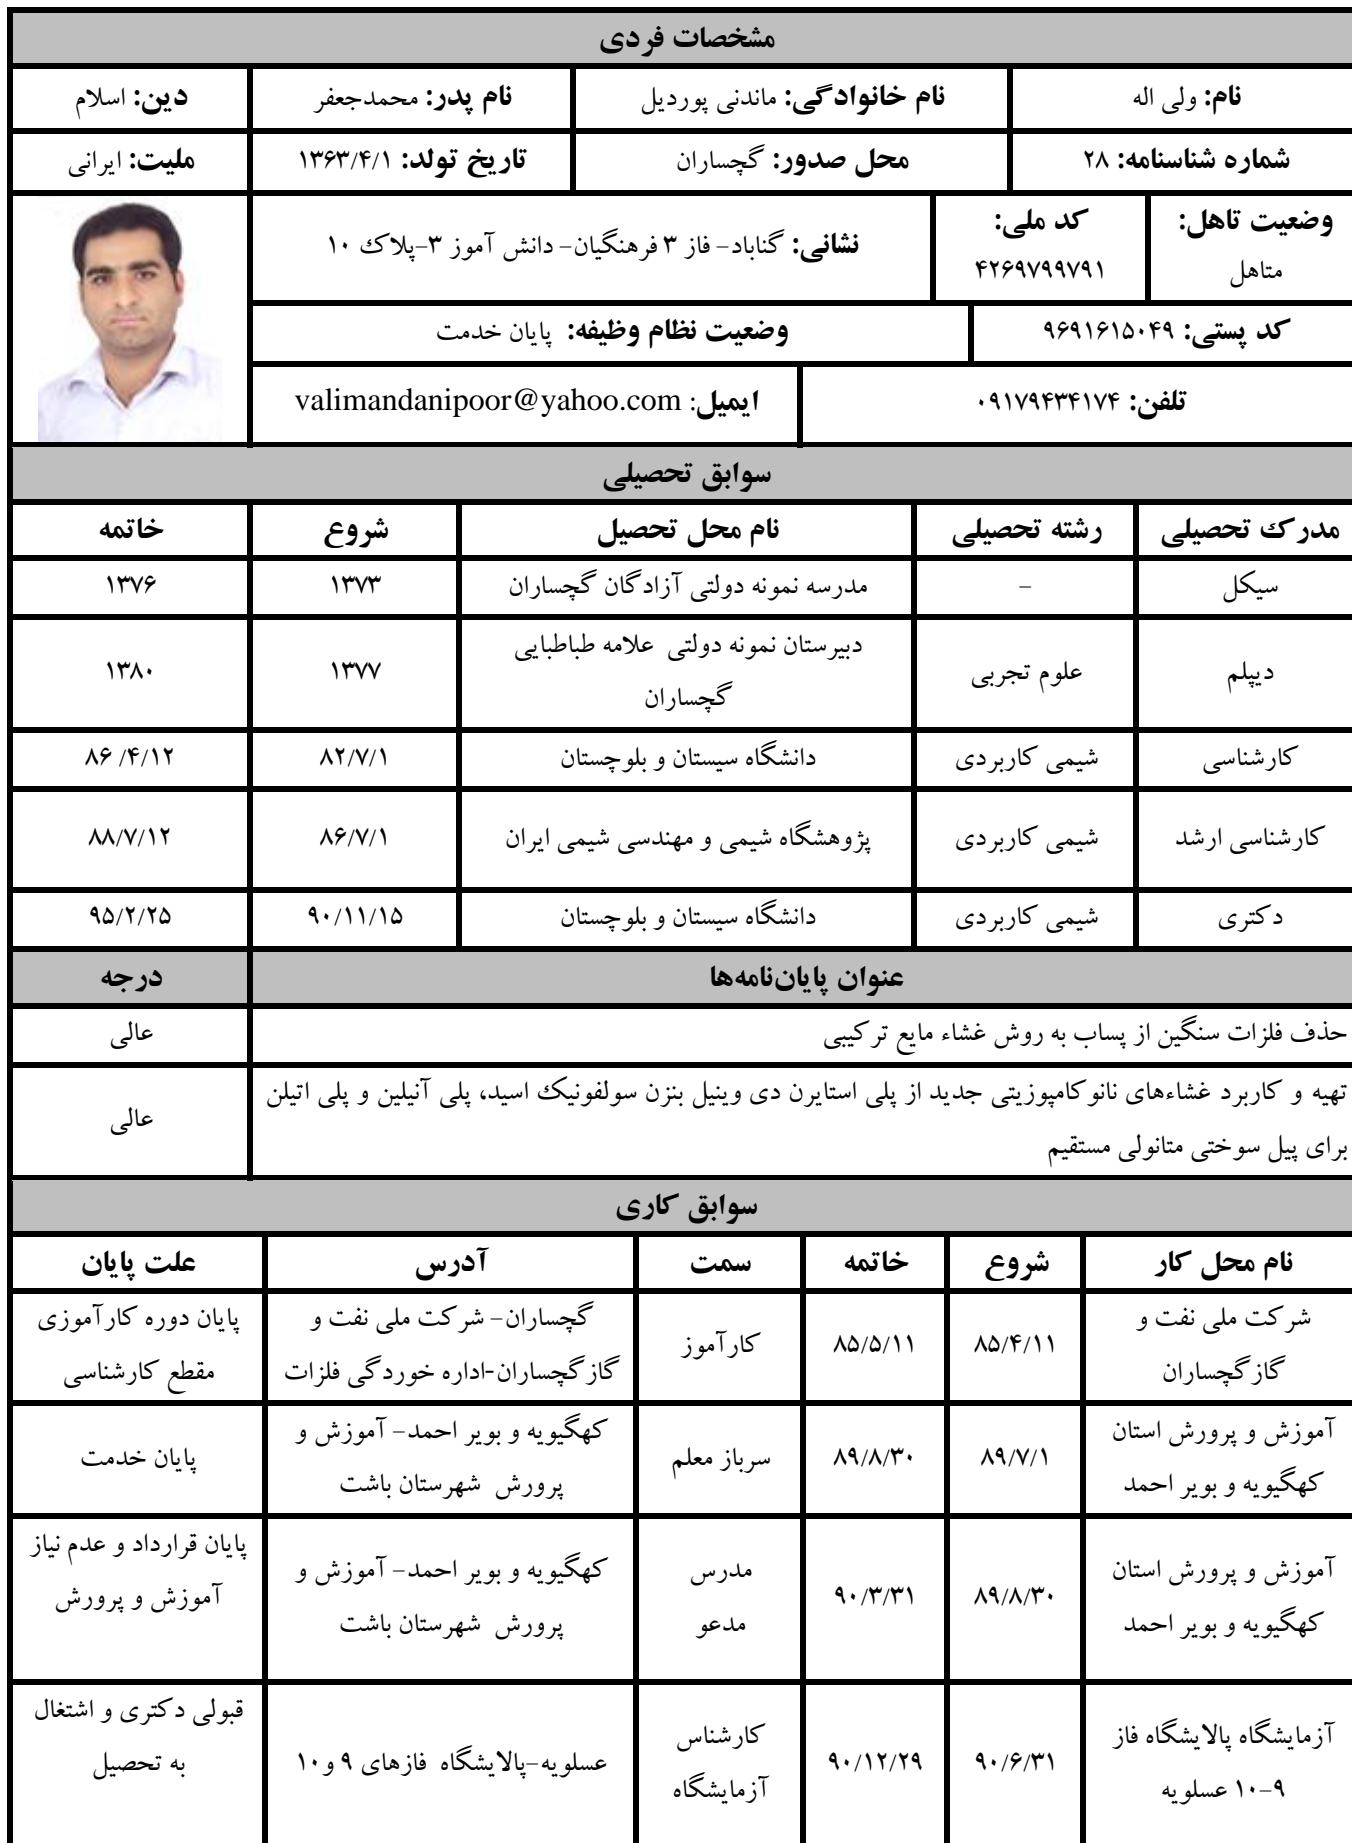 مشخصات فردی
نام: ولی اله
نام خانوادگی: ماندنی پوردیل
نام پدر: محمدجعفر
دین: اسلام
شماره شناسنامه: ۲۸
محل صدور: گچساران
تاریخ تولد: ۱۳۶۳/۴/۱
ملیت: ایرانی
وضعیت تاهل:
متاهل
کد ملی:
۴۲۶۹۷۹۹۷۹۱
نشانی: گناباد- فاز ۳ فرهنگیان- دانش آموز ۳-پلاک ۱۰
کد پستی: ۹۶۹۱۶۱۵۰۴۹
وضعیت نظام وظیفه: پایان خدمت
تلفن: ۰۹۱۷۹۴۳۴۱۷۴
ایمیل: valimandanipoor@yahoo.com
سوابق تحصیلی
مدرک تحصیلی
رشته تحصیلی
نام محل تحصیل
شروع
خاتمه
سیکل
-
مدرسه نمونه دولتی آزادگان گچساران
۱۳۷۳
۱۳۷۶
دیپلم
علوم تجربی
دبیرستان نمونه دولتی علامه طباطبایی
گچساران
۱۳۷۷
۱۳۸۰
کارشناسی
شیمی کاربردی
دانشگاه سیستان و بلوچستان
۸۲/۷/۱
۸۶ /۴/۱۲
کارشناسی ارشد
شیمی کاربردی
پژوهشگاه شیمی و مهندسی شیمی ایران
۸۶/۷/۱
۸۸/۷/۱۲
دکتری
شیمی کاربردی
دانشگاه سیستان و بلوچستان
۹۰/۱۱/۱۵
۹۵/۲/۲۵
عنوان پایان‌نامه‌ها
درجه
حذف فلزات سنگین از پساب به روش غشاء مایع ترکیبی
عالی
تهیه و کاربرد غشاءهای نانوکامپوزیتی جدید از پلی استایرن دی وینیل بنزن سولفونیک اسید، پلی آنیلین و پلی اتیلن
برای پیل سوختی متانولی مستقیم
عالی
سوابق کاری
نام محل کار
شروع
خاتمه
سمت
آدرس
علت پایان
شرکت ملی نفت و
گازگچساران
۸۵/۴/۱۱
۸۵/۵/۱۱
کارآموز
گچساران- شرکت ملی نفت و
گازگچساران-اداره خوردگی فلزات
پایان دوره کارآموزی
مقطع کارشناسی
آموزش و پرورش استان
کهگیویه و بویر احمد
۸۹/۷/۱
۸۹/۸/۳۰
سرباز معلم
کهگیویه و بویر احمد- آموزش و
پرورش شهرستان باشت
پایان خدمت
آموزش و پرورش استان
کهگیویه و بویر احمد
۸۹/۸/۳۰
۹۰/۳/۳۱
مدرس
مدعو
کهگیویه و بویر احمد- آموزش و
پرورش شهرستان باشت
پایان قرارداد و عدم نیاز
آموزش و پرورش
آزمایشگاه پالایشگاه فاز
۹-۱۰ عسلویه
۹۰/۶/۳۱
۹۰/۱۲/۲۹
کارشناس
آزمایشگاه
عسلویه-پالایشگاه فازهای ۹ و۱۰
قبولی دکتری و اشتغال
به تحصیل